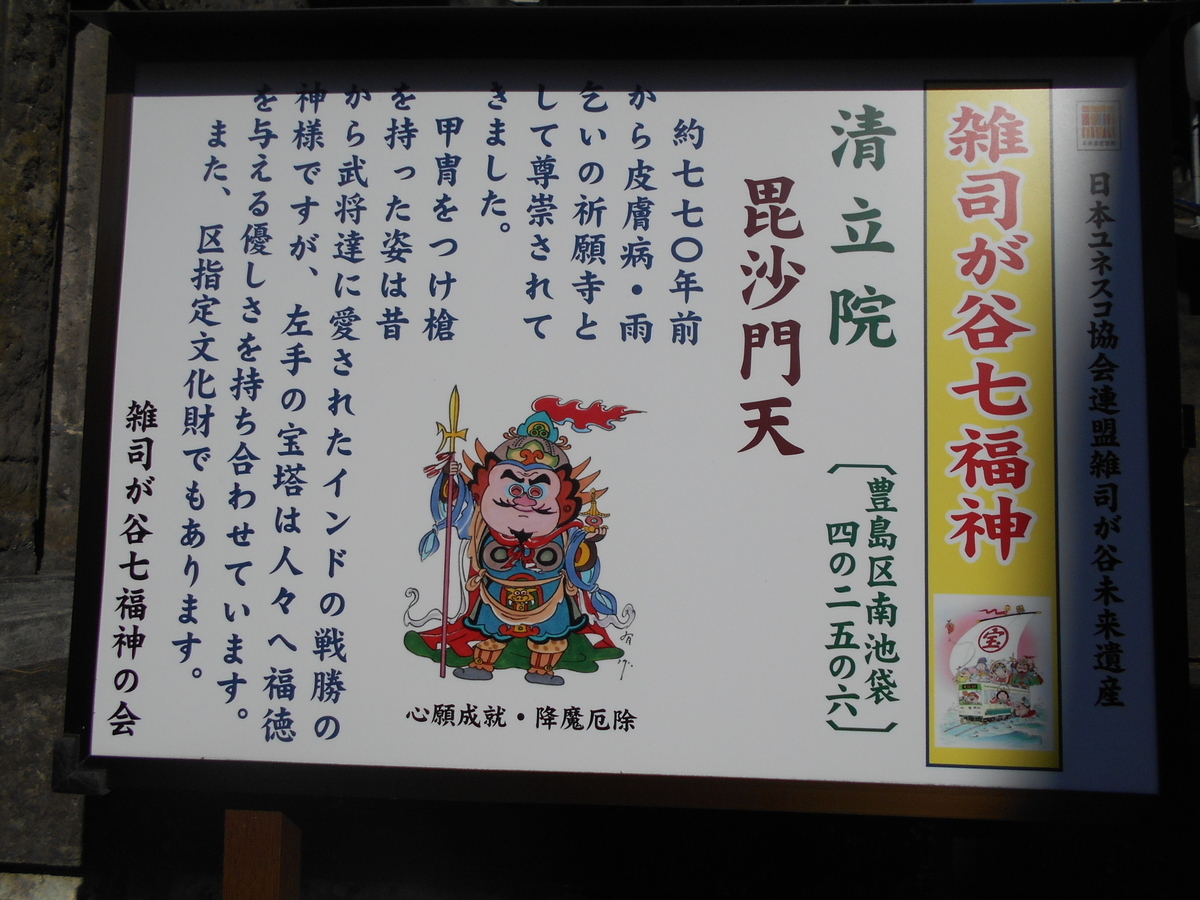 日本ユネスコ協会連盟雑司が谷未来遺産
雑司が谷七福神
宝
清立院
〔豊島区南池袋
四の二五の六〕
毘沙門天
約七七〇年前
から皮膚病・雨
乞いの祈願寺と
して尊崇されて
きました。
甲冑をつけ槍
を持った姿は昔
から武将達に愛されたインドの戦勝の
神様ですが、左手の宝塔は人々へ福徳
を与える優しさを持ち合わせています。
また、区指定文化財でもあります。
雑司が谷七福神の会
心願成就・降魔厄除